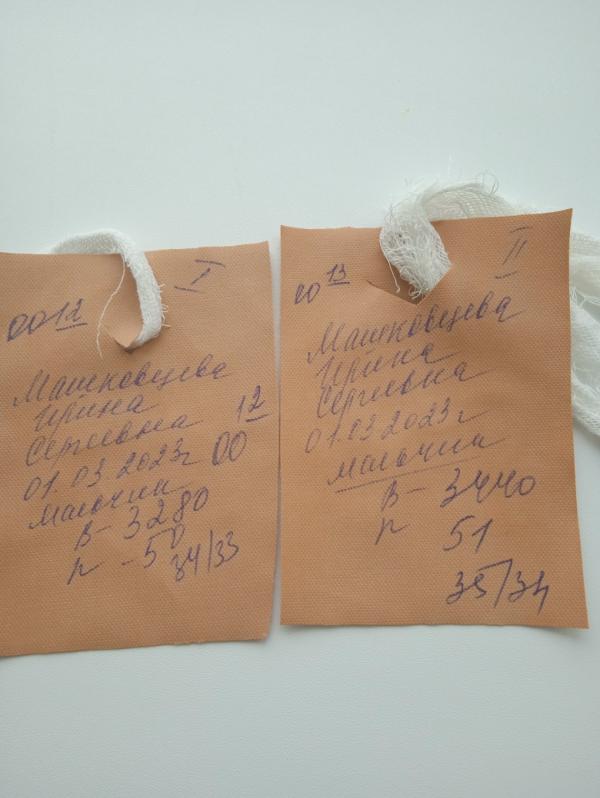 I
00 12
Машковцева
Ирина
Сергеевна 12
01.03.2023г 00
мальчик
В - 3280
р - 50
34/33
II
00 13
Машковцева
Ирина
Сергеевна
01.03.2023г
мальчик
В - 3440
р 51
35/34